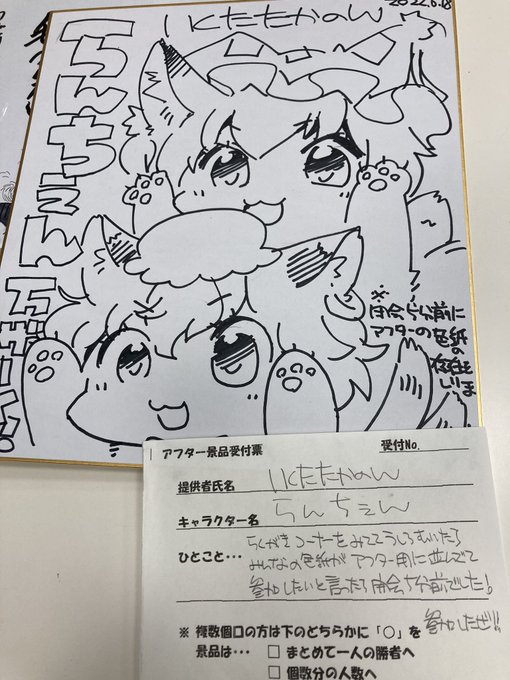 2022.6.18
いくたたかのん
らんちぇん
※
閉会5分前に
アフターの色紙
の
存在
しりま
アフター景品受付票
受付No.
提供者氏名 いくたたかのん
キャラクター名 らんちぇん
ひとこと・・・ らくがきコーナーをみててうしろをむいたら
みんなの色紙がアフター用に並んでて
参加したいと言ったら閉会5分前でした!
参加したぜ!!
※ 複数個口の方は下のどちらかに「○」を
景品は・・・ □ まとめて一人の勝者へ
□ 個数分の人数へ